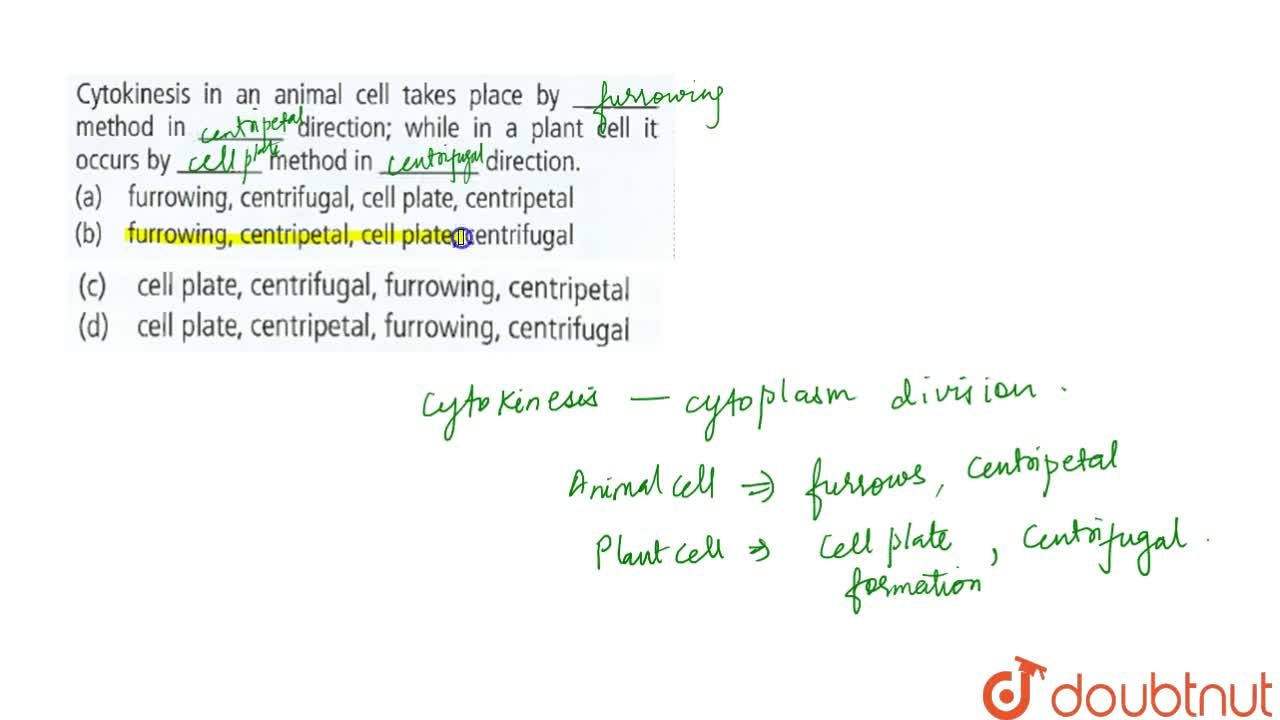 Cytokinesis in an animal cell takes place by furrowing
method in centripetal direction; while in a plant cell it
occurs by cell plate method in centrifugal direction.
(a) furrowing, centrifugal, cell plate, centripetal
(b) furrowing, centripetal, cell plate, centrifugal
(c) cell plate, centrifugal, furrowing, centripetal
(d) cell plate, centripetal, furrowing, centrifugal
Cytokinesis — cytoplasm division.
Animal cell ⇒ furrows, centripetal
Plant cell ⇒ cell plate, centrifugal.
formation
doubtnut